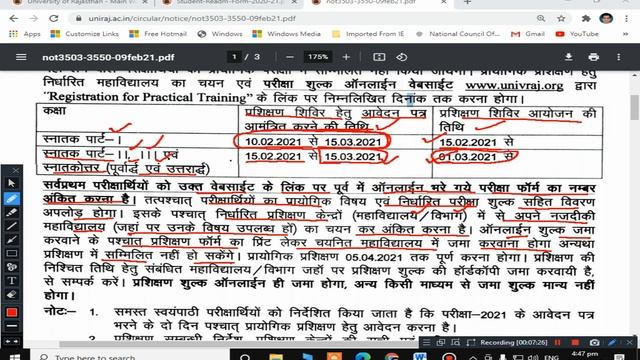 University of Rajasthan - Main W
Student-Readm-Form-2020-21.p
not3503-3550-09feb21.pdf
uniraj.ac.in/circular/notice/not3503-3550-09feb21.pdf
Apps
Web Slice Gallery
Hot Deals
Facebook
Imported From IE
Customize Links
Free Hotmail
not3503-3550-09feb21.pdf
1 / 3
175%
निर्धारित महाविद्यालय का चयन एवं परीक्षा शुल्क ऑनलाईन वेबसाईट www.univraj.org द्वारा
"Registration for Practical Training" के लिंक पर निम्नलिखित दिनांक तक करना होगा।
कक्षा
प्रशिक्षण शिविर हेतु आवेदन पत्र
आमंत्रित करने की तिथि
प्रशिक्षण शिविर आयोजन की
तिथि
स्नातक पार्ट- I
10.02.2021 से 15.03.2021
15.02.2021 से
स्नातक पार्ट- II, III एवं
स्नातकोत्तर (पूर्वार्द्ध एवं उत्तरार्द्ध)
15.02.2021 से 15.03.2021
01.03.2021 से
सर्वप्रथम परीक्षार्थियों को उक्त वेबसाईट के लिंक पर पूर्व में ऑनलाईन भरे गये परीक्षा फॉर्म का नम्बर
अंकित करना है। तत्पश्चात् परीक्षार्थियों का प्रायोगिक विषय एवं निर्धारित परीक्षा शुल्क सहित विवरण
अपलोड़ होगा। इसके पश्चात् निर्धारित प्रशिक्षण केन्द्रों (महाविद्यालय/विभाग) में से अपने नजदीकी
महाविद्यालय (जहां पर उनके विषय उपलब्ध हों) का चयन कर अंकित करना है। ऑनलाईन शुल्क जमा
करवाने के पश्चात् प्रशिक्षण फॉर्म का प्रिंट लेकर चयनित महाविद्यालय में जमा करवाना होगा अन्यथा
प्रशिक्षण में सम्मिलित नहीं हो सकेंगे। प्रायोगिक प्रशिक्षण 05.04.2021 तक पूर्ण करना होगा। प्रशिक्षण की
निश्चित तिथि हेतु संबंधित महाविद्यालय/विभाग जहां पर प्रशिक्षण शुल्क की हॉर्डकॉपी जमा करवायी है,
से सम्पर्क करें। प्रशिक्षण शुल्क ऑनलाईन ही जमा होगा, अन्य किसी माध्यम से जमा शुल्क मान्य नहीं
होगा।
नोटः- 1. समस्त स्वयंपाठी परीक्षार्थियों को निर्देशित किया जाता है कि परीक्षा-2021 के आवेदन पत्र
भरने के दो दिन पश्चात् प्रायोगिक प्रशिक्षण हेतु आवेदन करना है।
Recording [00:07:26]
4:47 pm